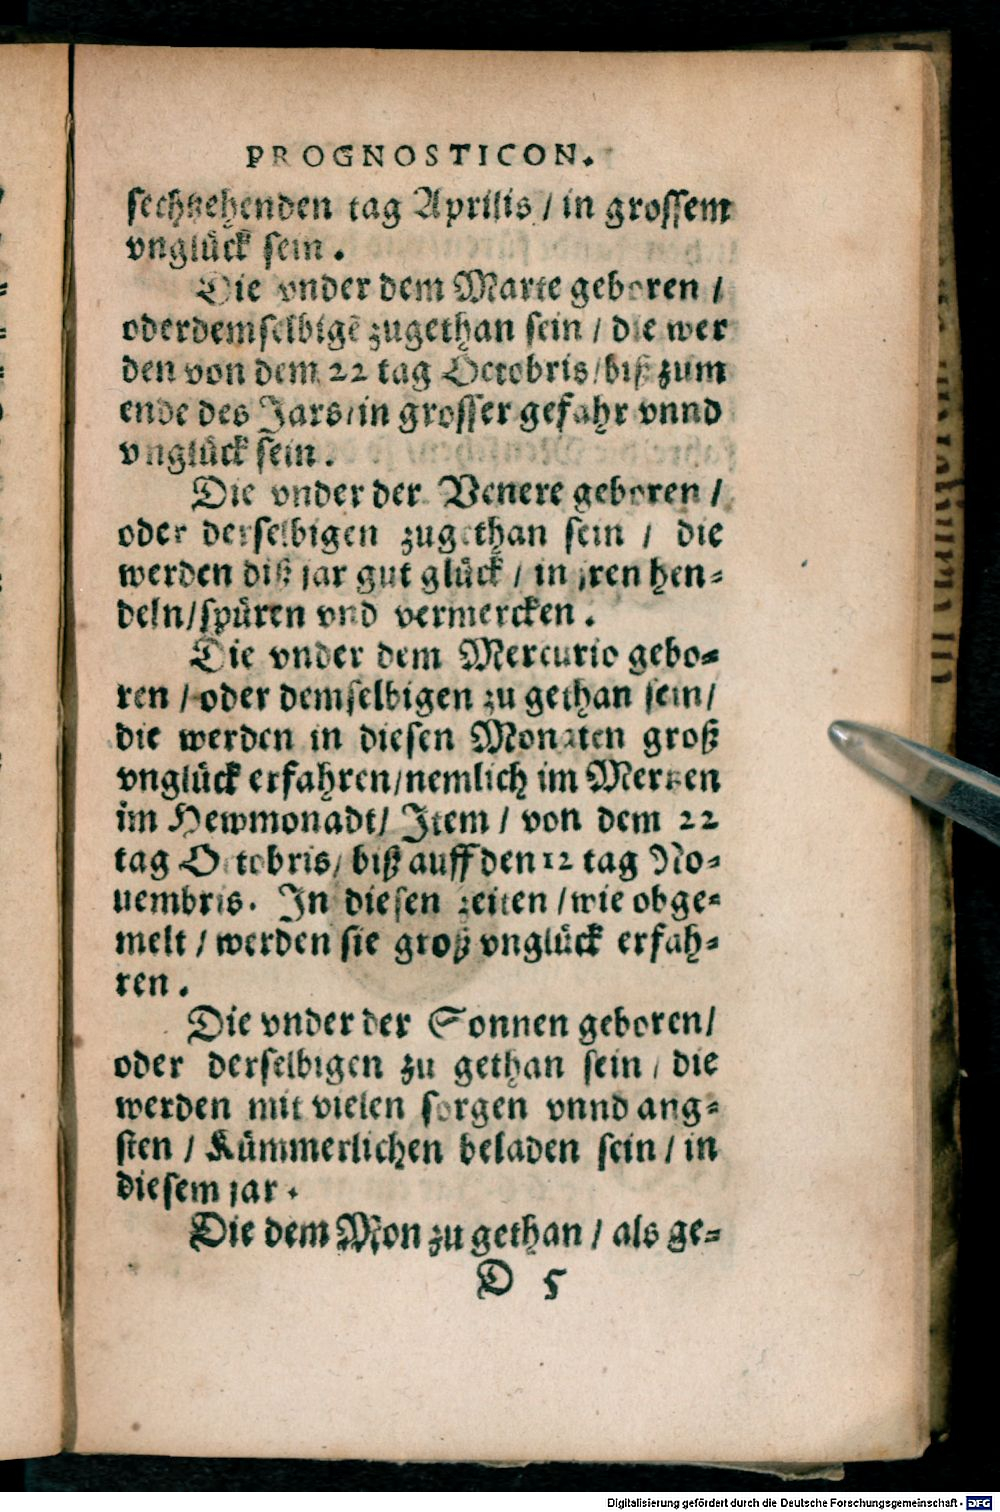 PROGNOSTICON.
sechtzehenden tag Aprilis / in grossem
vnglück sein.
Die vnder dem Marte geboren /
oderdemselbigē zugethan sein / die wer
den von dem 22 tag Octobris / biß zum
ende des Jars / in grosser gefahr vnnd
vnglück sein.
Die vnder der Venere geboren /
oder derselbigen zugethan sein / die
werden diß jar gut glück / in jren hen-
deln / spüren vnd vermercken.
Die vnder dem Mercurio gebo-
ren / oder demselbigen zu gethan sein /
die werden in diesen Monaten groß
vnglück erfahren / nemlich im Mertzen
im Hewmonadt / Item / von dem 22
tag Octobris / biß auff den 12 tag No-
uembris. In diesen zeiten / wie obge-
melt / werden sie groß vnglück erfah-
ren.
Die vnder der Sonnen geboren /
oder derselbigen zu gethan sein / die
werden mit vielen sorgen vnnd ang-
sten / Kümmerlichen beladen sein / in
diesem jar.
Die dem Mon zu gethan / als ge-
D 5
Digitalisierung gefördert durch die Deutsche Forschungsgemeinschaft - DFG